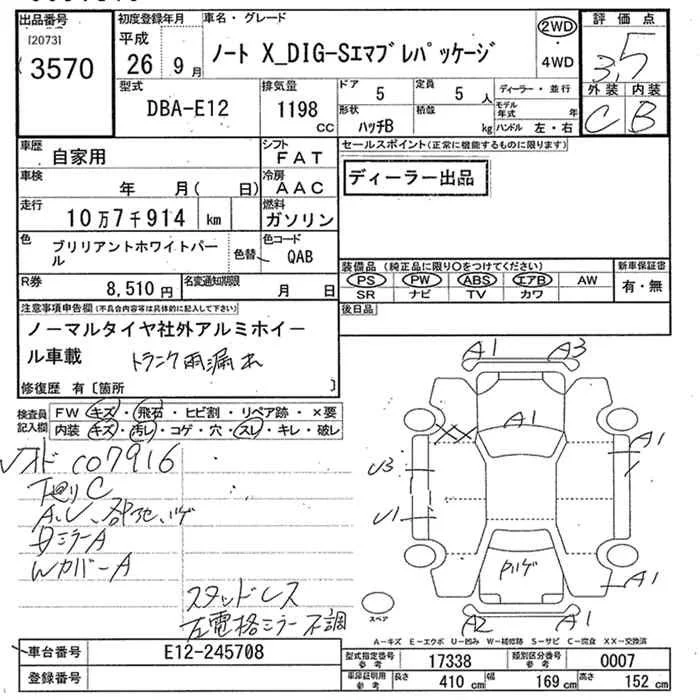 出品番号
[2073]
3570
初度登録年月
平成
26 9月
車名・グレード
ノート X_DIG-Sエマブレパッケージ
2WD
・
4WD
評価点
3.5
外装 内装
C B
型式
DBA-E12
排気量
1198
cc
ドア
5
定員
5 人
形状
ハッチB
積載
kg
ディーラー・並行
モデル年式 年
ハンドル 左・右
車歴
自家用
シフト
FAT
セールスポイント(正常に機能するものに限ります)
ディーラー出品
車検
年 月( 日)
冷房
AAC
走行
10万7千914 km
燃料
ガソリン
色
ブリリアントホワイトパール
色替
色コード
QAB
装備品 (純正品に限り○をつけてください)
新車保証書
PS PW ABS エアB AW
SR ナビ TV カワ
有・無
R券
8,510円
名変通知期限
月 日
後日品
注意事項申告欄(不具合内容等は具体的に記入して下さい)
ノーマルタイヤ社外アルミホイー
ル車載 トランク雨漏れ
修復歴 有〔箇所 〕
検査員
記入欄
FW キズ・飛石・ヒビ割・リペア跡・×要
内装 キズ・汚レ・コゲ・穴・スレ・キレ・破レ
CO7916
下廻りC
A、U、
ミラーA
WカバーA
スタッドレス
左電格ミラー不調
A1 A3
A1
XX
A1
U3
U1
A1
A2 A1
スペア
A-キズ E-エクボ U-凹み W-補修跡 S-サビ C-腐食 XX-交換済
車台番号
E12-245708
登録番号
型式指定番号
参考
17338
類別区分番号
参考
0007
車庫証明用
参考
長さ
410 cm
幅
169 cm
高さ
152 cm